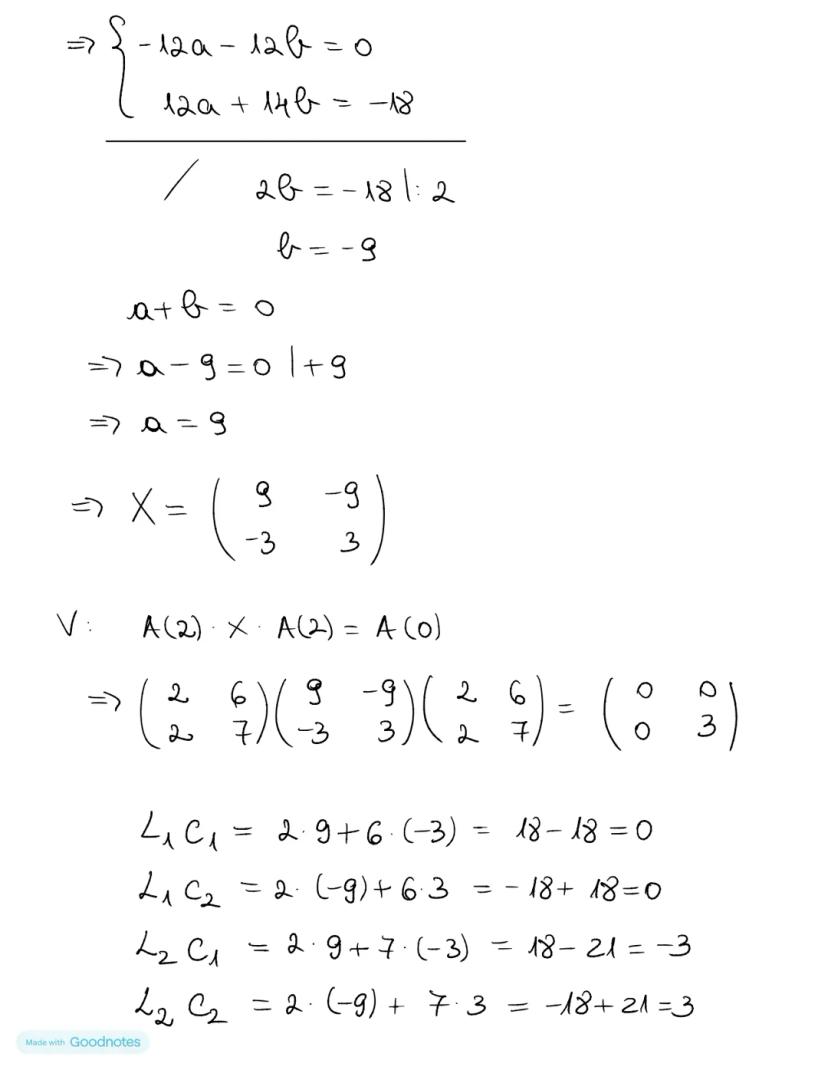 => { -12a - 12b = 0
12a + 14b = -18
/ 2b = -18 |: 2
b = -9
a + b = 0
=> a - 9 = 0 | + 9
=> a = 9
=> X = ( 9 -9
-3 3 )
V: A(2) · X · A(2) = A(0)
=> ( 2 6 ) ( 9 -9 ) ( 2 6 ) = ( 0 0 )
( 2 7 ) ( -3 3 ) ( 2 7 ) ( 0 3 )
L1 C1 = 2 · 9 + 6 · (-3) = 18 - 18 = 0
L1 C2 = 2 · (-9) + 6 · 3 = -18 + 18 = 0
L2 C1 = 2 · 9 + 7 · (-3) = 18 - 21 = -3
L2 C2 = 2 · (-9) + 7 · 3 = -18 + 21 = 3
Made with Goodnotes